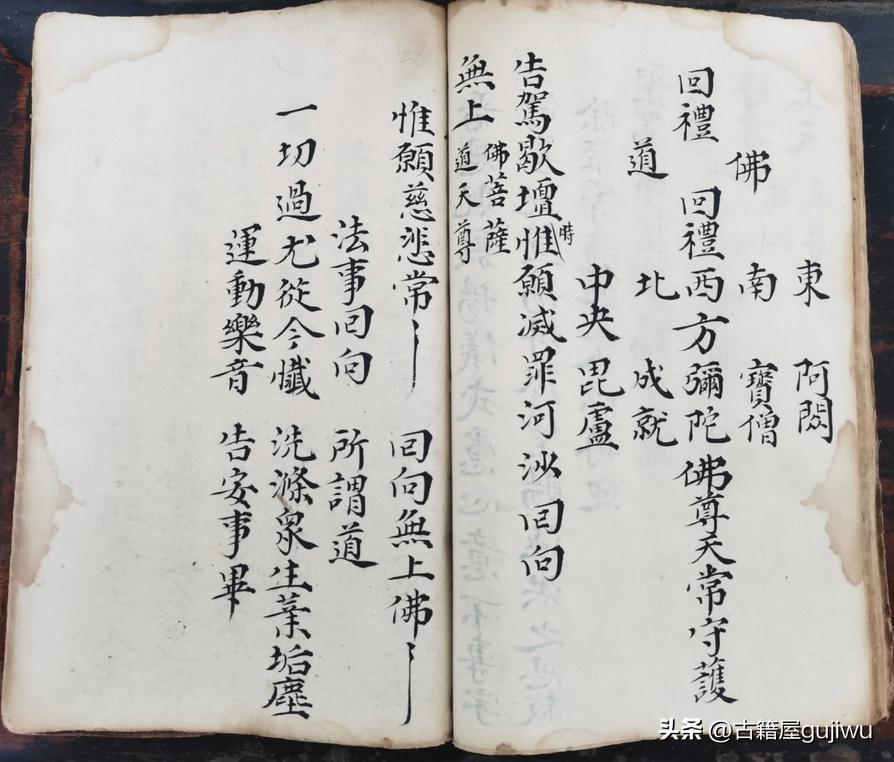 東 阿閦
佛 南 寶僧
回禮 回禮西方彌陀佛尊天常守護
道 北 成就
中央 毘盧
告駕歇壇惟時願滅罪河沙囘向
無上 佛菩薩
道天尊
惟願慈悲常 囘向無上佛
法事囘向 所謂道
一切過尤從今懺 洗滌衆生業垢塵
運動樂音 告安事畢
头条 @古籍屋gujiwu